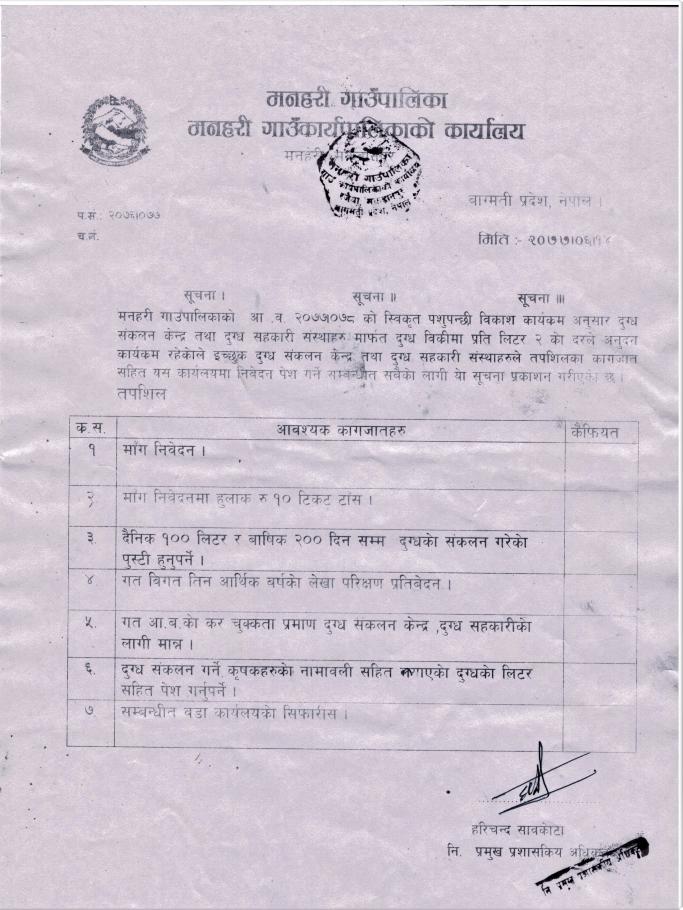 मनहरी गाउँपालिका
मनहरी गाउँकार्यपालिकाको कार्यालय
मनहरी,
मनहरी गाउँपालिका
गाउँ कार्यपालिकाको कार्यालय
बागमती प्रदेश, नेपाल
बाग्मती प्रदेश, नेपाल ।
प.सं.: २०७६।०७७
च.नं.
मिति :- २०७७।०६।१४
सूचना । सूचना ॥ सूचना ॥।
मनहरी गाउँपालिकाको आ .व. २०७७।०७८ को स्विकृत पशुपन्छी विकाश कार्यकम अनुसार दुग्ध
संकलन केन्द्र तथा दुग्ध सहकारी संस्थाहरु मार्फत दुग्ध विकीमा प्रति लिटर २ का दरले अनुदन
कार्यकम रहेकोले इच्छुक दुग्ध संकलन केन्द्र तथा दुग्ध सहकारी संस्थाहरुले तपशिलका कागजात
सहित यस कार्यलयमा निवेदन पेश गर्ने सम्बन्धीत सवैका लागी यो सूचना प्रकाशन गरीएको छ ।
तपशिल
क.स. आवश्यक कागजातहरु कैफियत
१ माँग निवेदन ।
२ माँग निवेदनमा हुलाक रु १० टिकट टाँस ।
३. दैनिक १०० लिटर र बाषिक २०० दिन सम्म दुग्धको संकलन गरेको
पुस्टी हुनुपर्ने ।
४ गत विगत तिन आर्थिक बर्षको लेखा परिक्षण प्रतिबेदन ।
५. गत आ.ब.को कर चुक्कता प्रमाण दुग्ध संकलन केन्द्र ,दुग्ध सहकारीको
लागी मात्र ।
६. दुग्ध संकलन गर्ने कृषकहरुको नामावली सहित दुग्धको लिटर
सहित पेश गर्नुपर्ने ।
७ सम्बन्धीत वडा कार्यलयको सिफारीस ।
हरिचन्द्र सापकोटा
नि. प्रमुख प्रशासकिय
नि प्रमुख प्रशासकीय अधिकृत